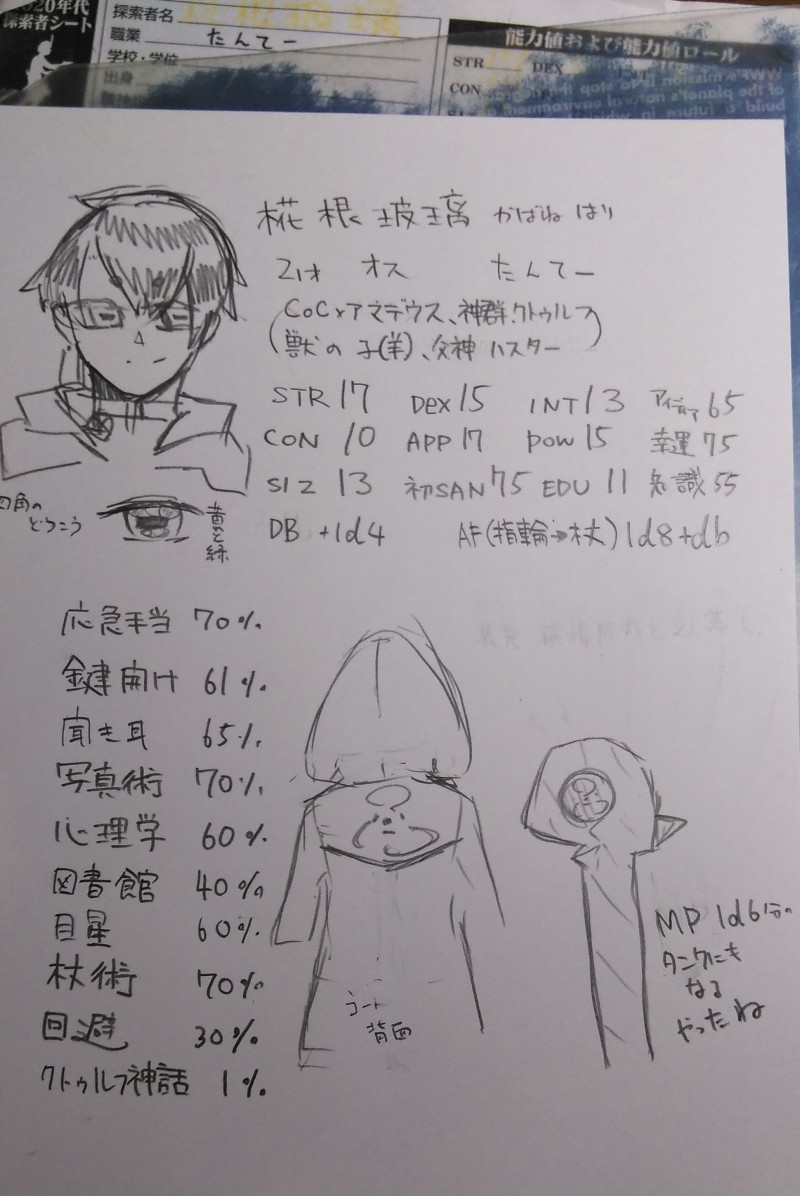 2020年代
探索者シート
探索者名
職業 たんてー
学校・学位
出身
能力値および能力値ロール
STR DEX INT
CON
椛根玻璃 かばね はり
21才 オス たんてー
(CoC×アマデウス、神群クトゥルフ
獣の子(羊)、父神ハスター)
STR 17 DEX 15 INT 13 アイディア 65
CON 10 APP 17 POW 15 幸運 75
SIZ 13 初SAN 75 EDU 11 知識 55
DB +1d4 AF(指輪→杖) 1d8+db
四角の
どうこう
黄と緑
応急手当 70%
鍵開け 61%
聞き耳 65%
写真術 70%
心理学 60%
図書館 40%
目星 60%
杖術 70%
回避 30%
クトゥルフ神話 1%
コート
背面
MP 1d6分の
タンクにも
なる
やったね